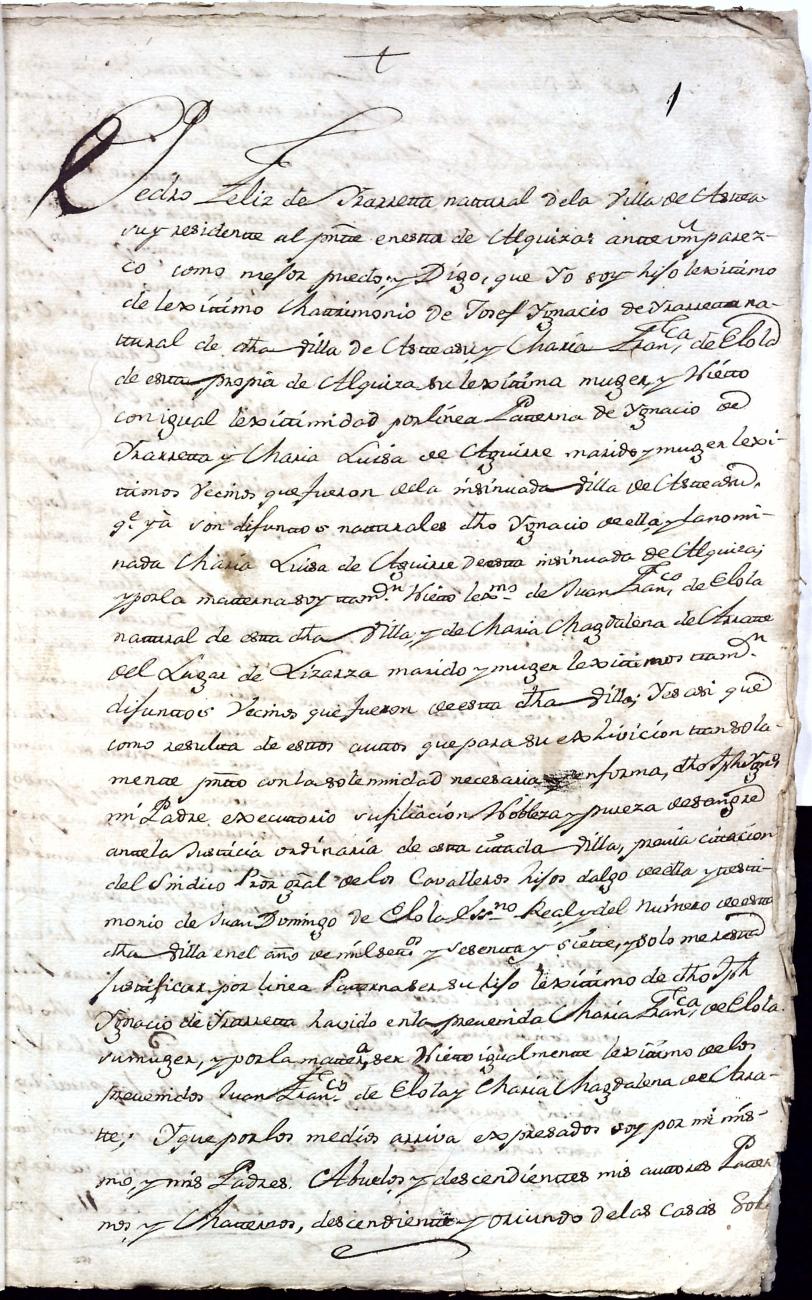 1
Pedro Feliz de Yrarretta natural dela Villa de Astea-
su y residente al pnte en esta de Alquiza: ante Vm parez-
co como mejor puedo, y Digo, que Yo soy hijo lexitimo
de lexitimo Matrimonio de Josef Ygnacio de Yrarretta na-
ttural de dha Villa de Asteasu y Maria Franca, de Elola
de esta propia de Alquiza su lexitima muger, y Nietto
con igual lexitimidad por linea Patterna de Ygnacio de
Yrarretta y Maria Luisa de Aguirre marido y muger lexi-
timos Vecinos que fueron de la insinuada Villa de Asteasu,
qe. ya son difunttos natturales dho Ygnacio de ella, y la nomi-
nada Maria Luisa de Aguirre de esta insinuada de Alquiza;
y por la matterna soy ttamn. Nietto lexmo. de Juan Franco. de Elola
natural de esta dha Villa, y de Maria Magdalena de Arratte
del Lugar de Lizarza marido y muger lexittimos ttamn.
difunttos Vecinos que fueron de esta dha Villa; Y es asi que
como resulta de estos auttos que para su exhivicion ttan sola-
mentte pntto con la solemnidad necesaria en forma, dho Jph Ygno
mi Padre executorio su filiacion Nobleza y pureza de sangre
ante la Justicia ordinaria de esta cittada Villa, previa citacion
del Sindico Pror gral de los Cavalleros hijos dalgo de ella y testi-
monio de Juan Domingo de Elola Essno. Real y del Numero de esta
dha Villa en el año de mil settos y sesenta y siette, y solo me resta
justificar por linea Patterna ser su hijo lexittimo de dho Jph
Ygnacio de Yrarretta havido en la prevenida Maria Franca, de Elola
su muger, y por la matterа, ser Nietto igualmente lexitimo de los
prevenidos Juan Franco. de Elola y Maria Magdalena de Arra-
tte; Y que por los medios arriva expresados soy por mi mis-
mo, y mis Padres, Abuelos, y descendienttes mis autores Patter
nos, y Matternos, descendiente y oriundo de las casas Sola